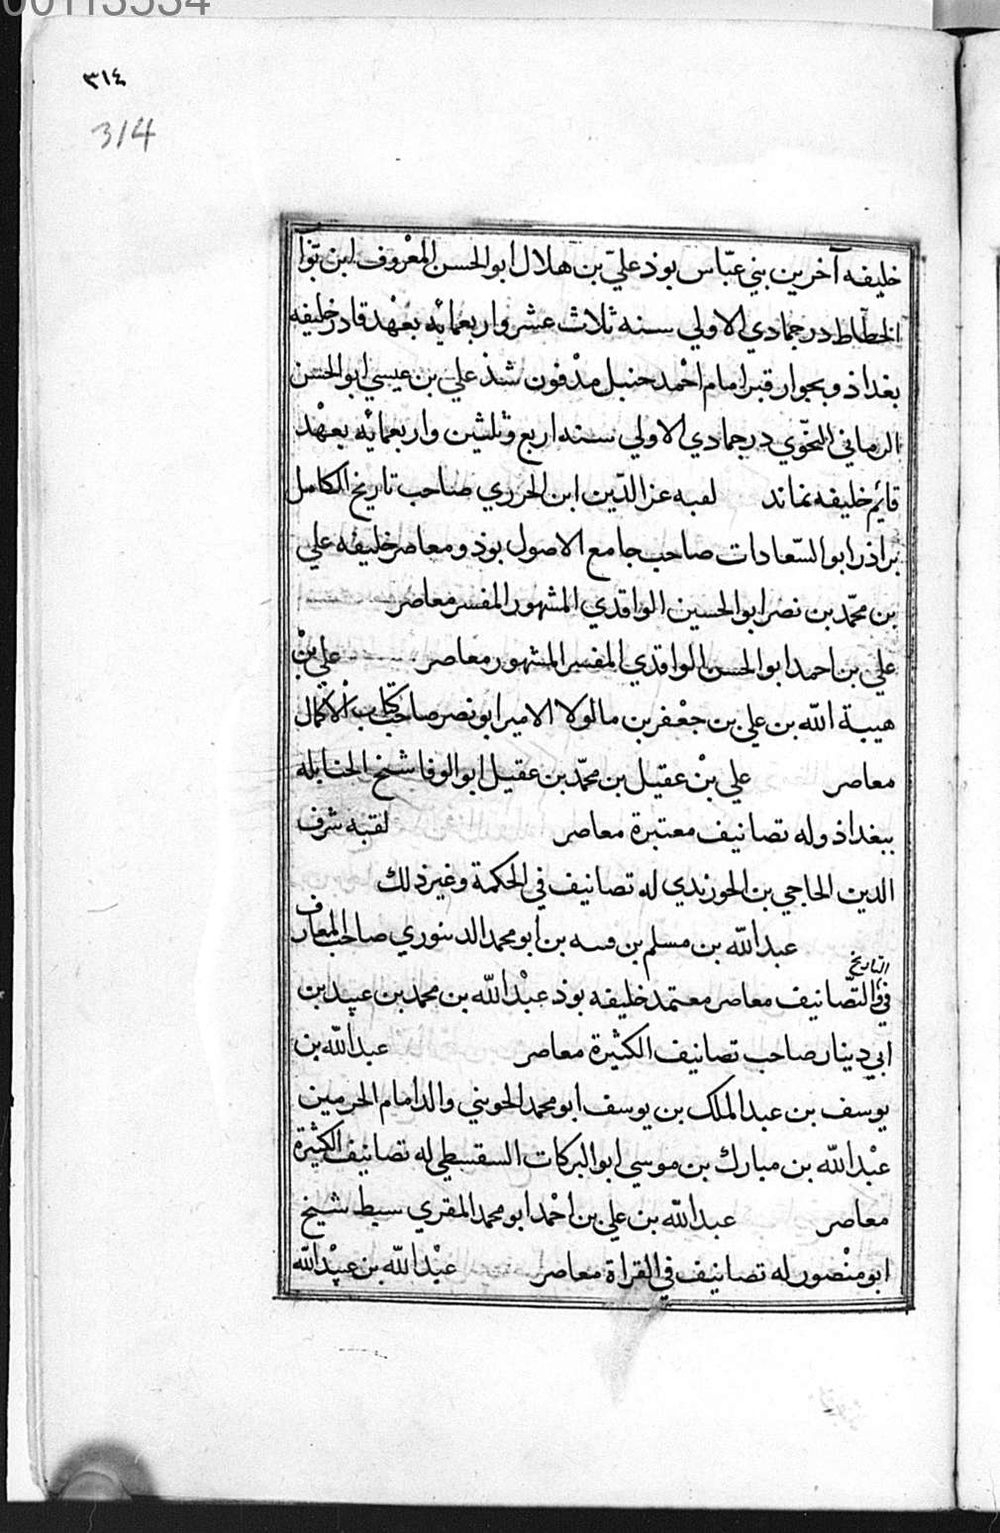 00113534
٣١٤
314
خليفه آخرين بني عبّاس بوذ عليّ بن هلال ابو الحسن المعْروف ابن بوّا
الخطاط در جمادي الاولي سنه ثلاث عشر واربعمايه بعهْد قادر خليفه
بغداذ وبجوار قبر امام احْمد حنبل مدْفون شذ علي بن عيسي ابو الحسن
الرماني النحّوي در جمادي الاولي سنه اربع وثلثين واربعمائه بعهْد
قائم خليفه نماند لقبه عز الدّين ابن الحرري صاحب تاريخ الكامل
براذر ابو السّعادات صاحب جامع الاصول بوذ ومعاصر خليفه علي
بن محمّد بن نصر ابو الحسين الواقدي المشهور المفسر معاصر
علي بن احمد ابو الحسن الواقدي المفسر المشهور معاصر علي بنْ
هيبة الله بن علي بن جعْفر بن مالولا الامير ابو نصر صاحب كتاب الاكمال
معاصر علي بنْ عقيل بن محمّد بن عقيل ابو الوفا شيخ الحنابله
ببغداذ وله تصانيف معتبرة معاصر لقبه شرف
الدين الحاجي بن الحوزندي له تصانيف في الحكمة وغير ذلك
عبد الله بن مسلم بن ٯٮٮه بن ابو محمد الدينوري صاحب المعارف
التاريخ
في والتّصانيف معاصر معتمد خليفه بوذ عبْد الله بن محمد بن عبيد بن
ابي دينار صاحب تصانيف الكثيرة معاصر عبد الله بن
يوسف بن عبد الملك بن يوسف ابو محمد الحويني والد امام الحرمين
عبْد الله بن مبارك بن موسي ابو البركات السقسطي له تصانيف الكثيرة
معاصر عبد الله بن علي بن احْمد ابو محمد المقري سبط شيخ
ابو منْصور له تصانيف في القراة معاصر عبْد الله بن عبيْد الله